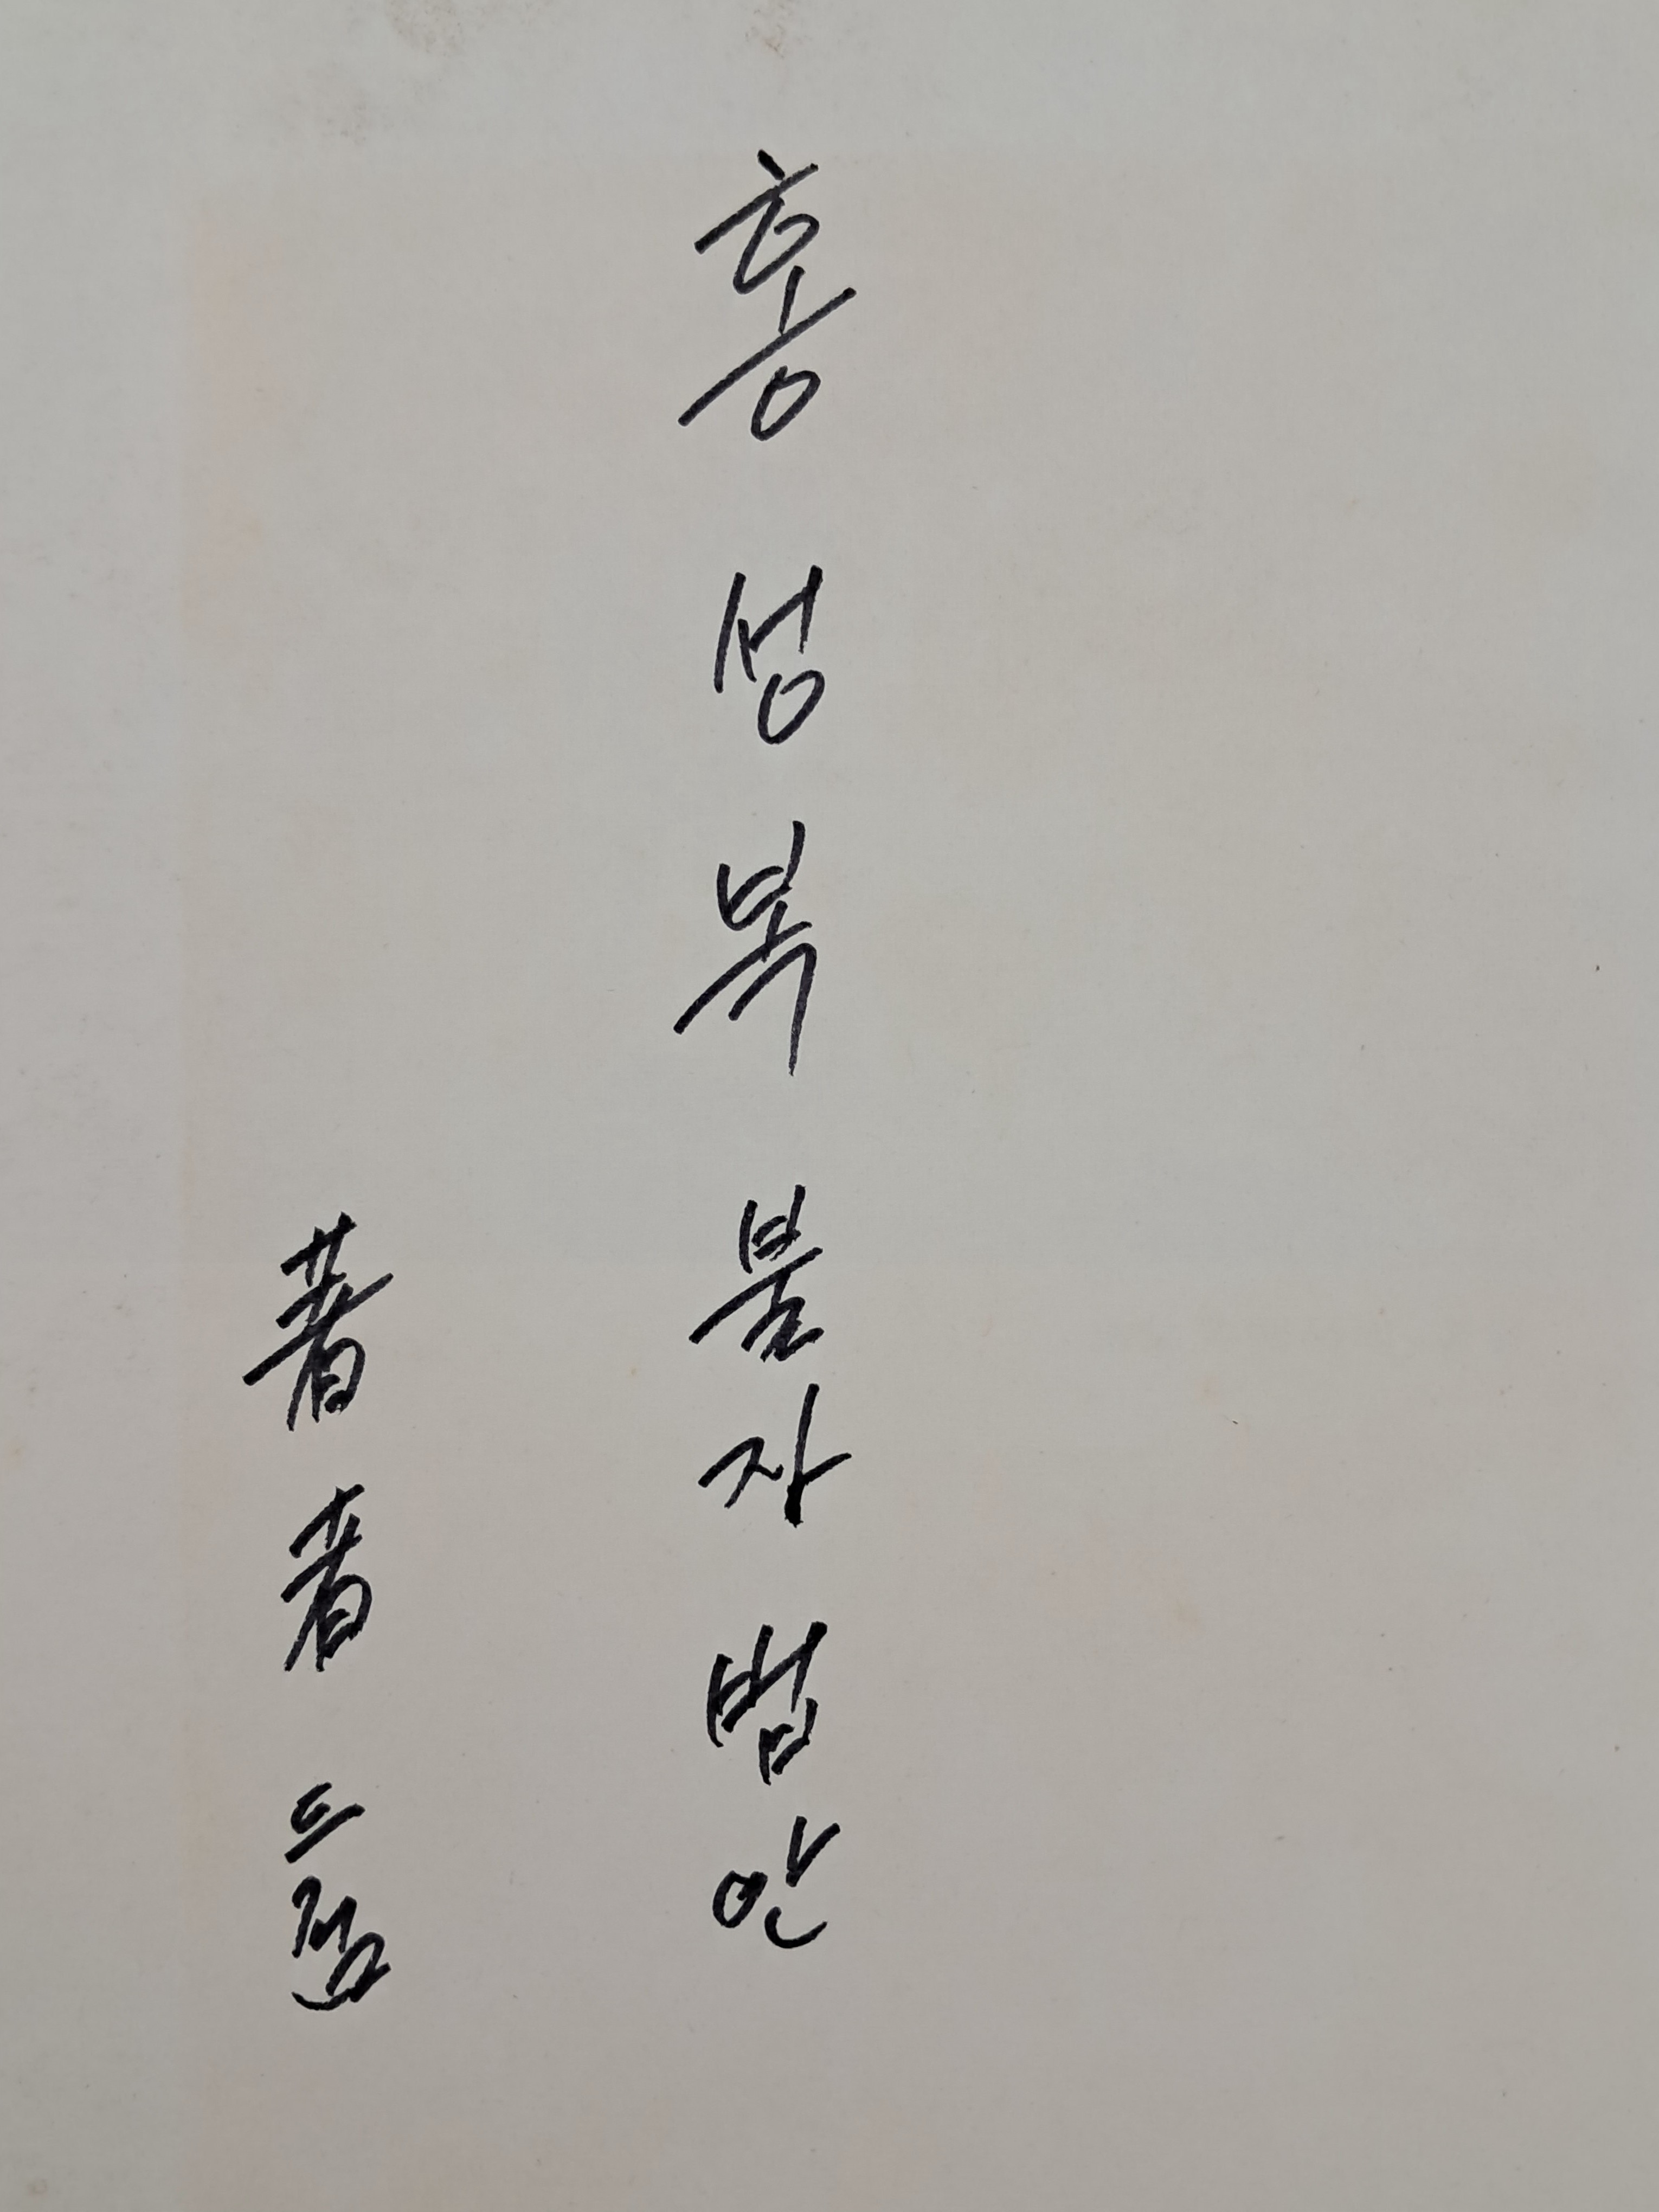 홍성복 불자 법안
著者 드림